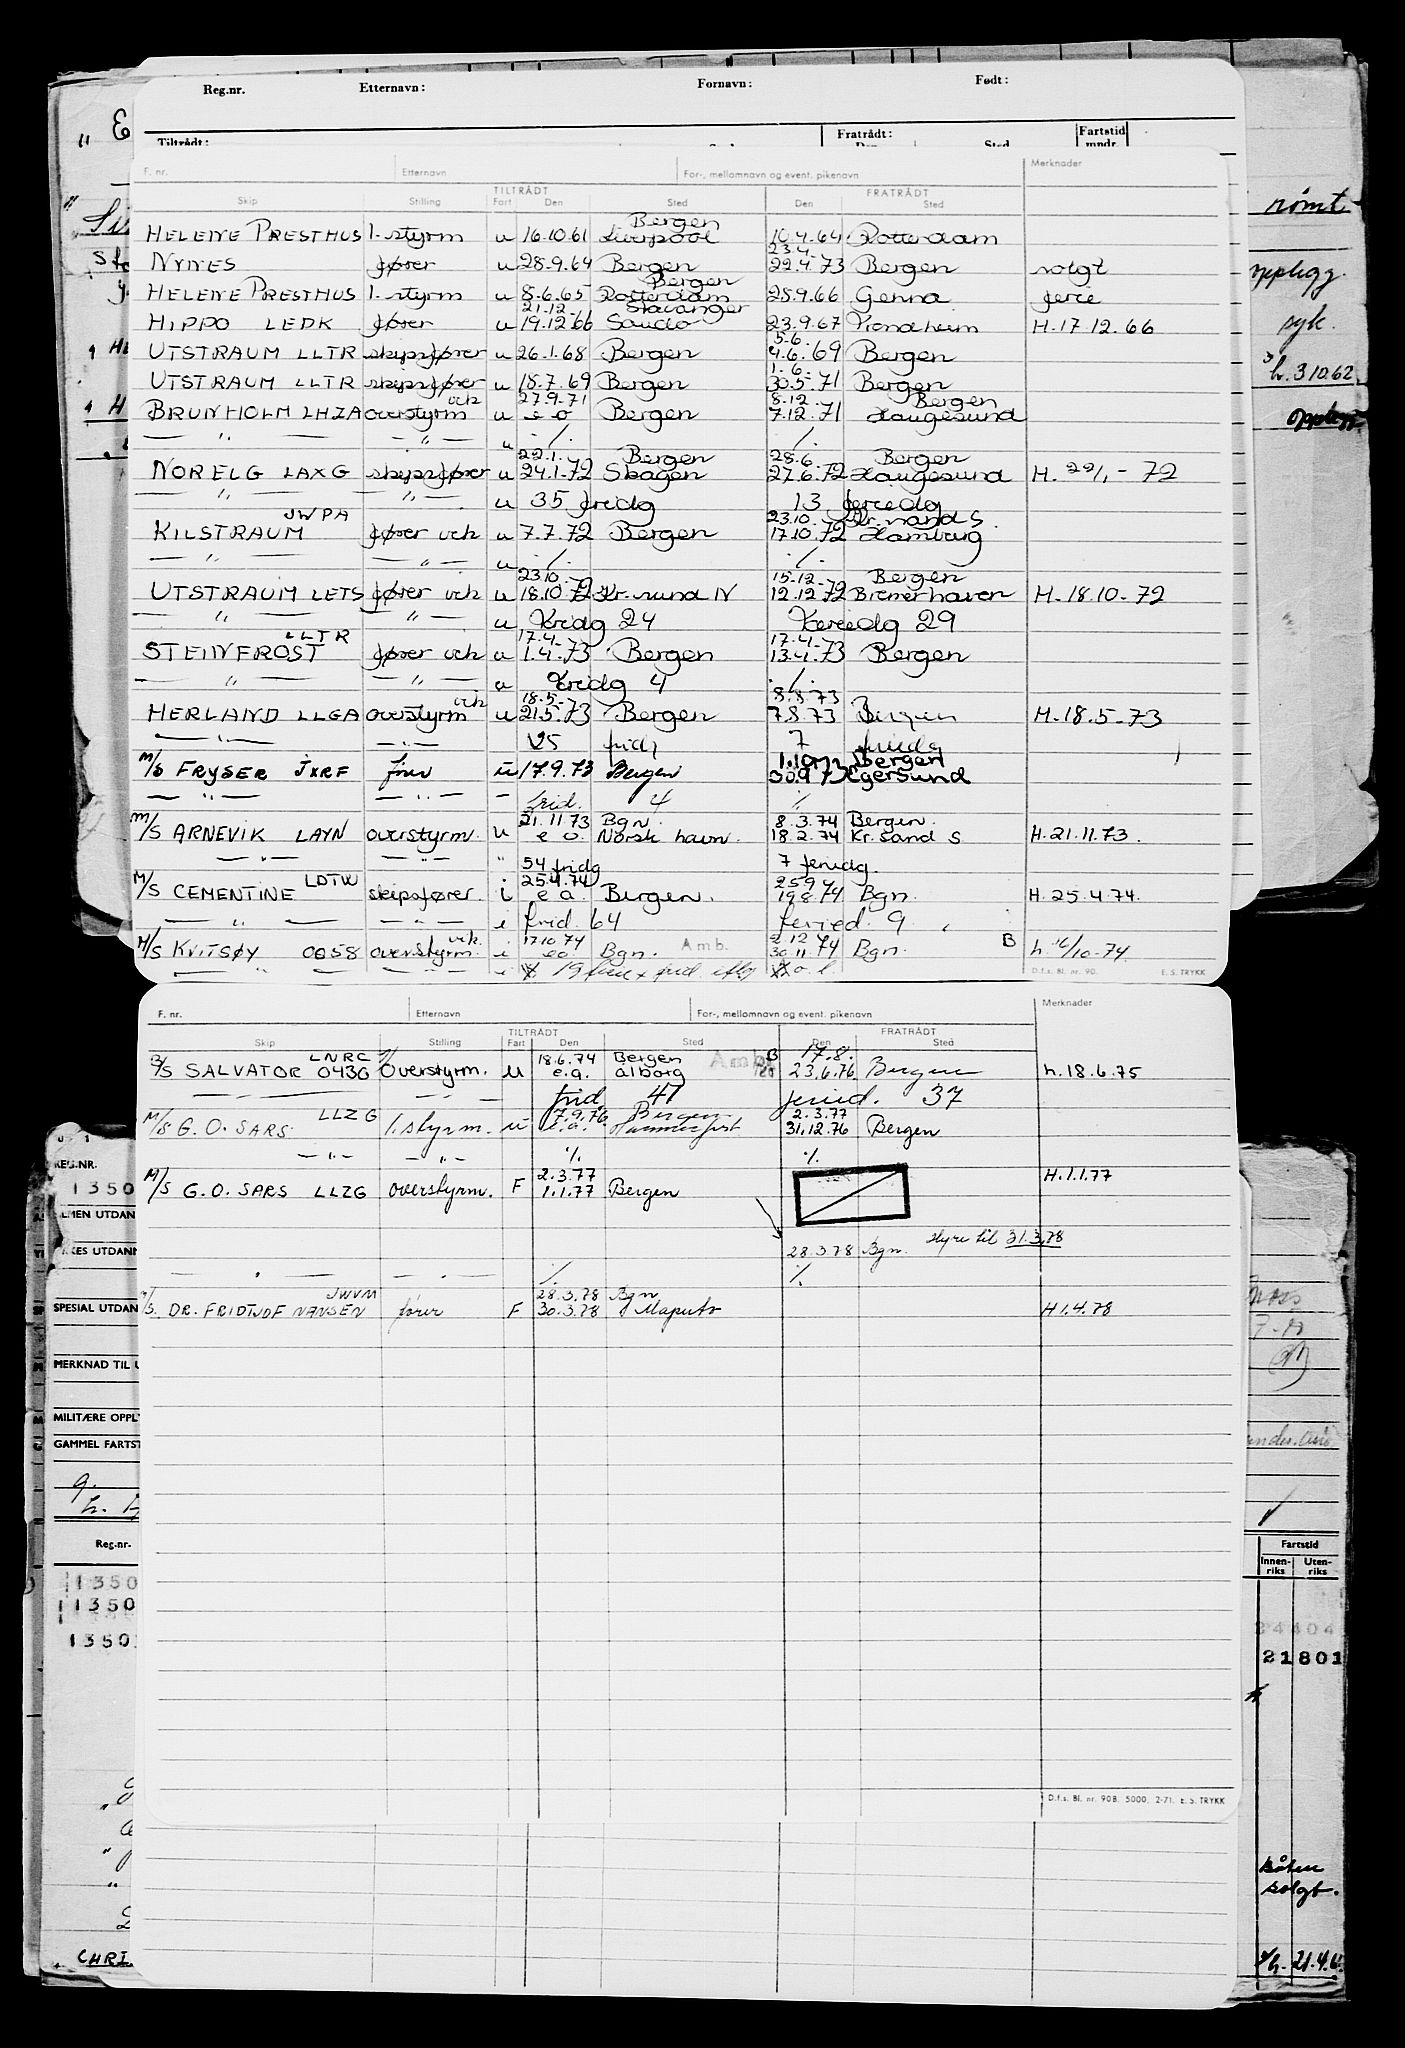 Reg.nr. Etternavn: Fornavn: Født:
Tiltrådt: Fratrådt: Fartstid
Den Sted mndr.
F. nr. Etternavn For-, mellomnavn og event. pikenavn Merknader
TILTRÅDT FRATRÅDT
Skip Stilling Fart Den Sted Den Sted
Bergen
HELENE PRESTHUS 1. styrm u 16.10.61 Liverpool 10.4.64 Rotterdam
23.4.
NYNES fører u 28.9.64 Bergen 22.4.73 Bergen solgt
Bergen
HELENE PRESTHUS 1. styrm u 8.6.65 Rotterdam 28.9.66 Genua ferie
21.12. Stavanger
HIPPO LEDK fører u 19.12.66 Sauda 23.9.67 Trondheim H.17.12.66
5.6.
UTSTRAUM LLTR skipsfører u 26.1.68 Bergen 4.6.69 Bergen
1.6.
UTSTRAUM LLTR skipsfører u 18.7.69 Bergen 30.5.71 Bergen
vik 27.9.71 8.12. Bergen
BRUNHOLM LHZA overstyrm u e o Bergen 7.12.71 Haugesund
— " — — " — u ·/. ·/.
22.1. Bergen 28.6. Bergen
NORELG LAXG skipsfører u 24.1.72 Skagen 27.6.72 Haugesund H. 22/1 - 72
— " — — " — u 35 fridg 13 feriedg
JWPA 23.10. Kr.sand S.
KILSTRAUM fører vik u 7.7.72 Bergen 17.10.72 Hamburg
— " — — " — u ·/. ·/.
23.10. 15.12. Bergen
UTSTRAUM LETS fører vik u 18.10.72 Kr.sund N 12.12.72 Bremerhaven H.18.10-72
— " — — " — u Fridg 24 Feriedg 29
LLTR 17.4. 17.4.
STEINFROST fører vik u 1.4.73 Bergen 13.4.73 Bergen
— " — — " — u Fridg 4 ·/.
vik 18.5. 8.8.73
HERLAND LLGA overstyrm u 21.5.73 Bergen 7.8.73 Bergen H.18.5-73
— " — — " — 25 fridg 7 feriedg
1.10.73 Bergen
M/S FRYSER JXRF fører u 17.9.73 Bergen 30.9.73 Egersund
— " — — " — frid. 4 ·/.
21.11.73 Bgn. 8.3.74 Bergen.
M/S ARNEVIK LAYN overstyrm. u e o. Norsk havn. 18.2.74 Kr.sand S H.21.11.73.
— " — — " — " 54 fridg 7 feriedg.
LDTW 25.4.74
M/S CEMENTINE skipsfører. i e a. Bergen. 19.8.74 Bgn. H.25.4.74.
— " — — " — i frid. 64 feried. 9
vik. 17.10.74 Amb. 2.12 B
M/S KVITSØY 0058 overstyrm. i eo Bgn. 30.11.74 Bgn. h. 16/10-74.
D.f.s. Bl. nr. 90. E. S. TRYKK
F. nr. Etternavn For-, mellomnavn og event. pikenavn Merknader
TILTRÅDT FRATRÅDT
Skip Stilling Fart Den Sted Den Sted
LNRC 18.6.74 Bergen Amb. B 17.8.
B/S SALVATOR 0430 Overstyrm. u e.a. ålborg 23.6.76 Bergen h.18.6.75
— " — — " — frid. 47 feried. 37
LLZG 7.9.76 Bergen 2.3.77
M/S G.O. SARS 1. styrm. u e.a. Hammerfest 31.12.76 Bergen
— " — — " — ·/. ·/.
2.3.77
M/S G.O. SARS LLZG overstyrm. F 1.1.77 Bergen H.1.1.77
28.3.78 Bgn. hyre til 31.3.78
— " — — " — ·/. ·/.
JWVM 28.3.78 Bgn
M/S. DR. FRIDTJOF NANSEN fører F 30.3.78 Maputo H 1.4.78
D.f.s. Bl. nr. 90B. 5000. 2-71. E. S. TRYKK
rømt
opplegg.
syk.
h. 3 10.62
opplegg
REG.NR.
1350
SPESIAL UTDAN
MERKNAD TIL U
MILITÆRE OPPL
GAMMEL FARTST
Reg.nr.
1350
1350
1350
Fartstid
Innen-riks Uten-riks
24404
21801
båten
solgt.
CHRI
h. 21.4.6